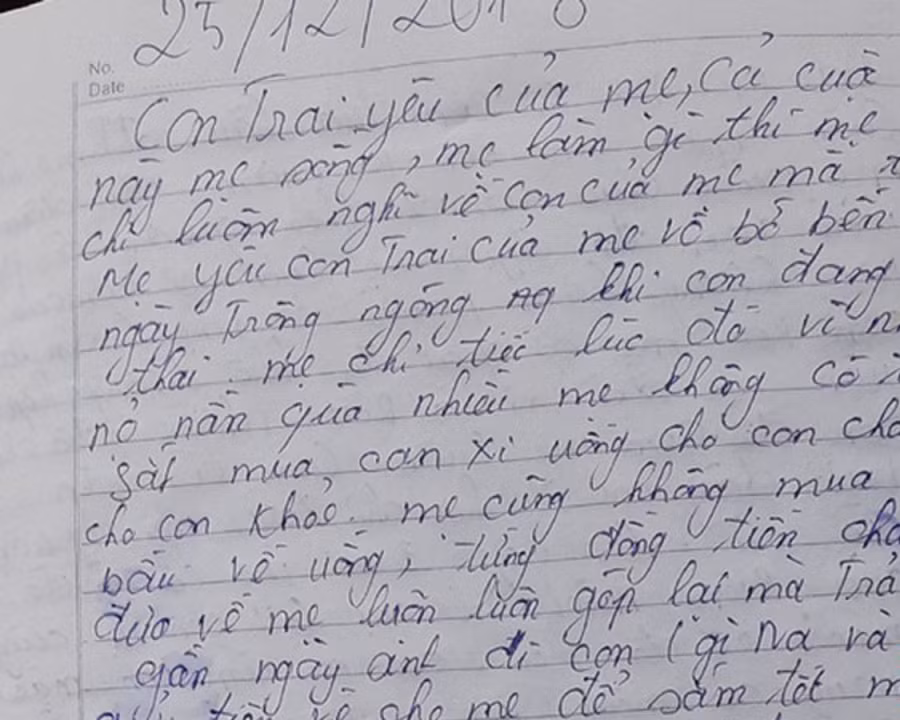 25/12/201 8
No.
Date
Con Trai yêu của mẹ, Cả cuộ
này mẹ sống, mẹ làm gì thì mẹ
chỉ luôn nghĩ về con của mẹ mà
Mẹ yêu con Trai của mẹ vô bờ bến
ngày Trông ngóng khi con đang
thai. mẹ chỉ tiếc lúc đó vì n
nợ nần quá nhiều mẹ không có
sắt mua, can xi uống cho con cho
cho con khoẻ. mẹ cũng không mua
bầu về uống, từng đồng tiền cha
đưa về mẹ luôn luôn góp lại mà Trả
gần ngày sinh đi con (gì Na và
cho mẹ để sắm tết m